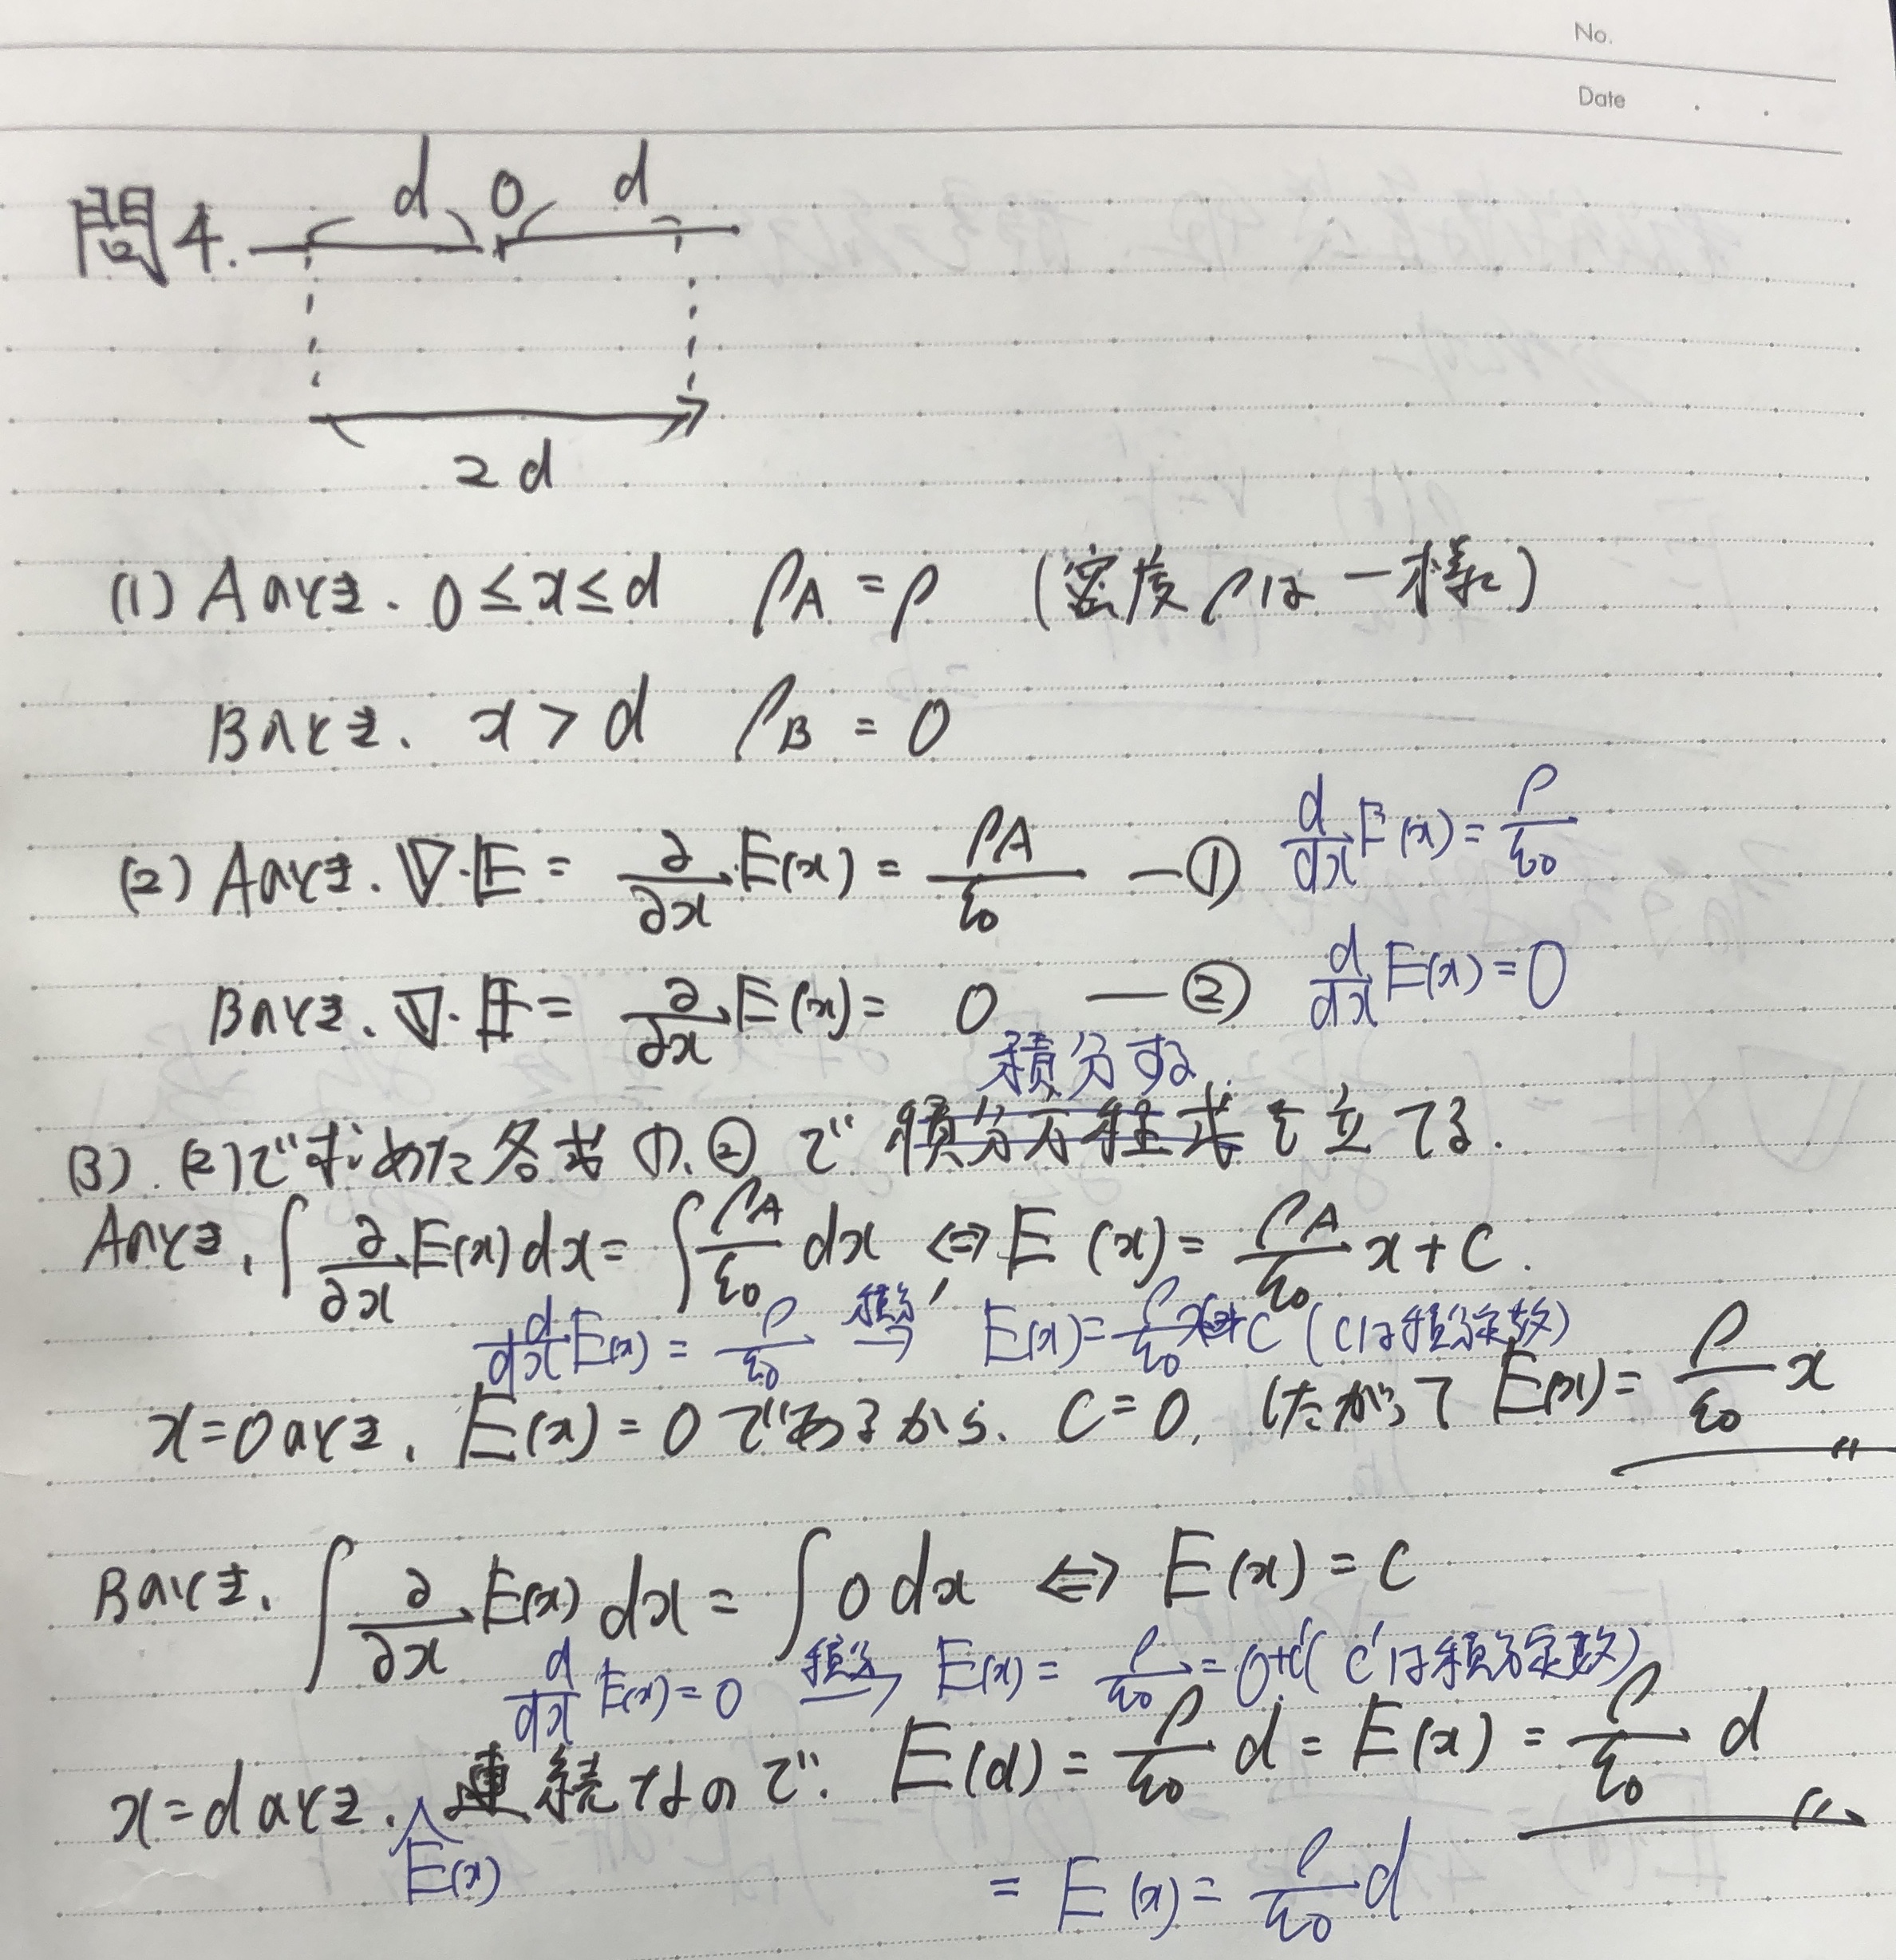 No.
Date
問4. d 0 d
2d
(1) Aのとき. 0≤x≤d ρA = ρ (密度ρは一様)
Bのとき. x > d ρB = 0
(2) Aのとき. ∇·E = ∂/∂x E(x) = ρA/ε0 —① d/dx E(x) = ρ/ε0
Bのとき. ∇·E = ∂/∂x E(x) = 0 —② d/dx E(x) = 0
積分する
(3). (2)で求めた各式の、②で積分方程式を立てる.
Aのとき, ∫ ∂/∂x E(x) dx = ∫ ρA/ε0 dx ⇔ E(x) = ρA/ε0 x + C.
d/dx E(x) = ρ/ε0 積分→ E(x) = ρ/ε0 x + C (Cは積分定数)
x=0のとき, E(x) = 0であるから. C = 0, したがって E(x) = ρ/ε0 x
Bのとき. ∫ ∂/∂x E(x) dx = ∫ 0 dx ⇔ E(x) = C
d/dx E(x) = 0 積分→ E(x) = ρ/ε0 = 0+C' (C'は積分定数)
x=dのとき. 連続なので. E(d) = ρ/ε0 d = E(x) = ρ/ε0 d
E(x)
= E(x) = ρ/ε0 d